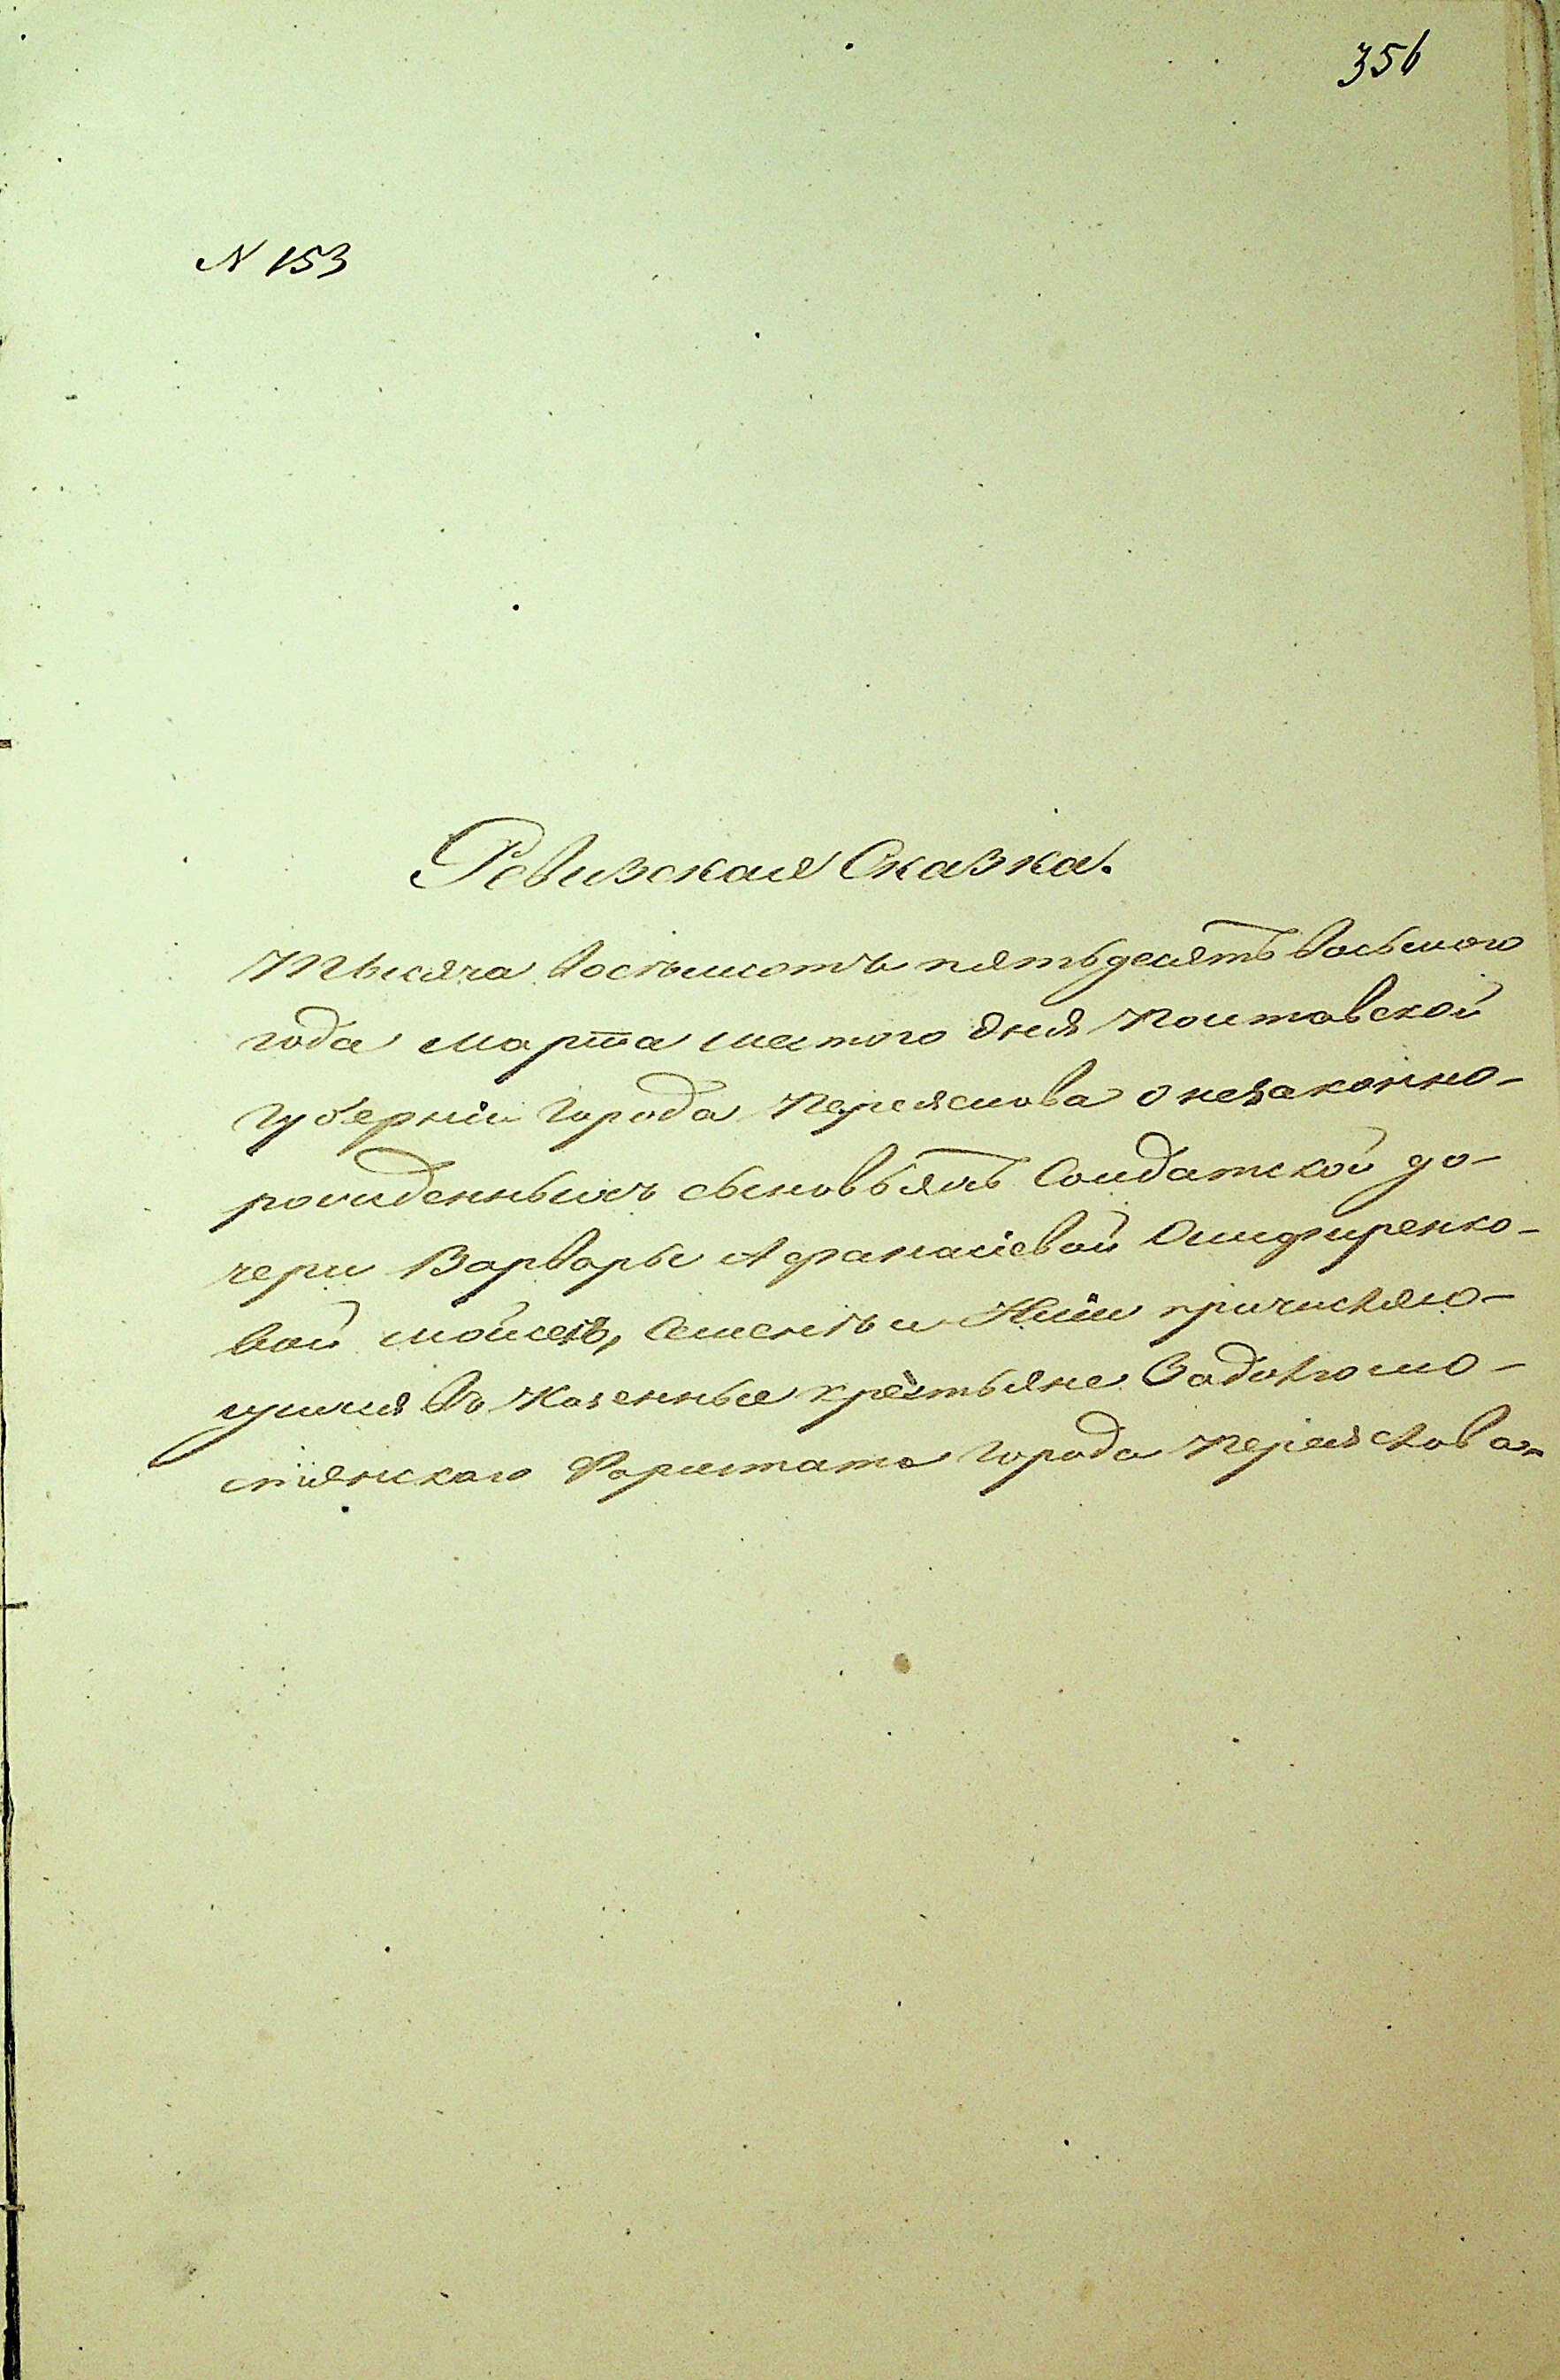 356
N 153
Ревизская Сказка.
Тысяча восемьсотъ пятьдесятъ восьмого
года марта шестого дня Полтавской
губерніи города Переяслова о незаконно-
рожденныхъ сыновьяхъ Солдатской до-
чери Варвары Афанасіевой
вой Мойсеѣ, Семенѣ и причисляю-
щихся въ Казенные крестьяне
города Переяслова